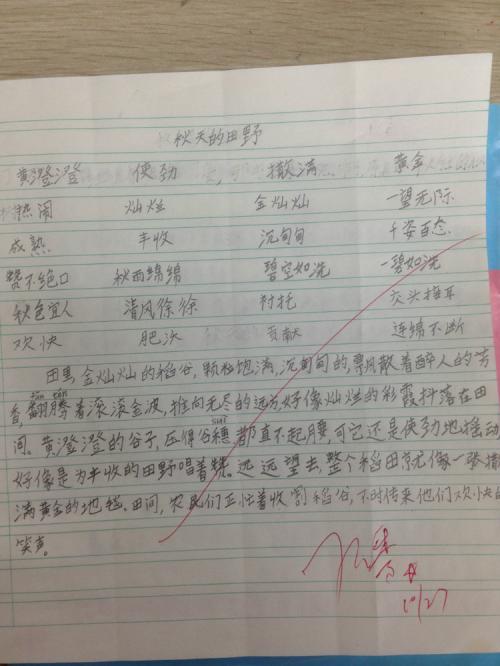 秋天的田野
黄澄澄 使劲 撒满 黄金
热闹 灿烂 金灿灿 一望无际
成熟 丰收 沉甸甸 千姿百态
赞不绝口 秋雨绵绵 碧空如洗 一碧如洗
秋色宜人 清风徐徐 衬托 交头接耳
欢快 肥沃 贡献 连绵不断
田里,金灿灿的稻谷,颗粒饱满,沉甸甸的,飘散着醉人的芳
香,翻腾着滚滚金波,推向无尽的远方,好像灿烂的彩霞抖落在田
间。黄澄澄的谷子,压得谷穗都直不起腰,可它还是使劲地摇动
好像是为丰收的田野唱着 远远望去,整个稻田就像一张撒
满黄金的地毯。田间,农民们正忙着收割稻谷,不时传来他们欢快的
笑声。
10/27